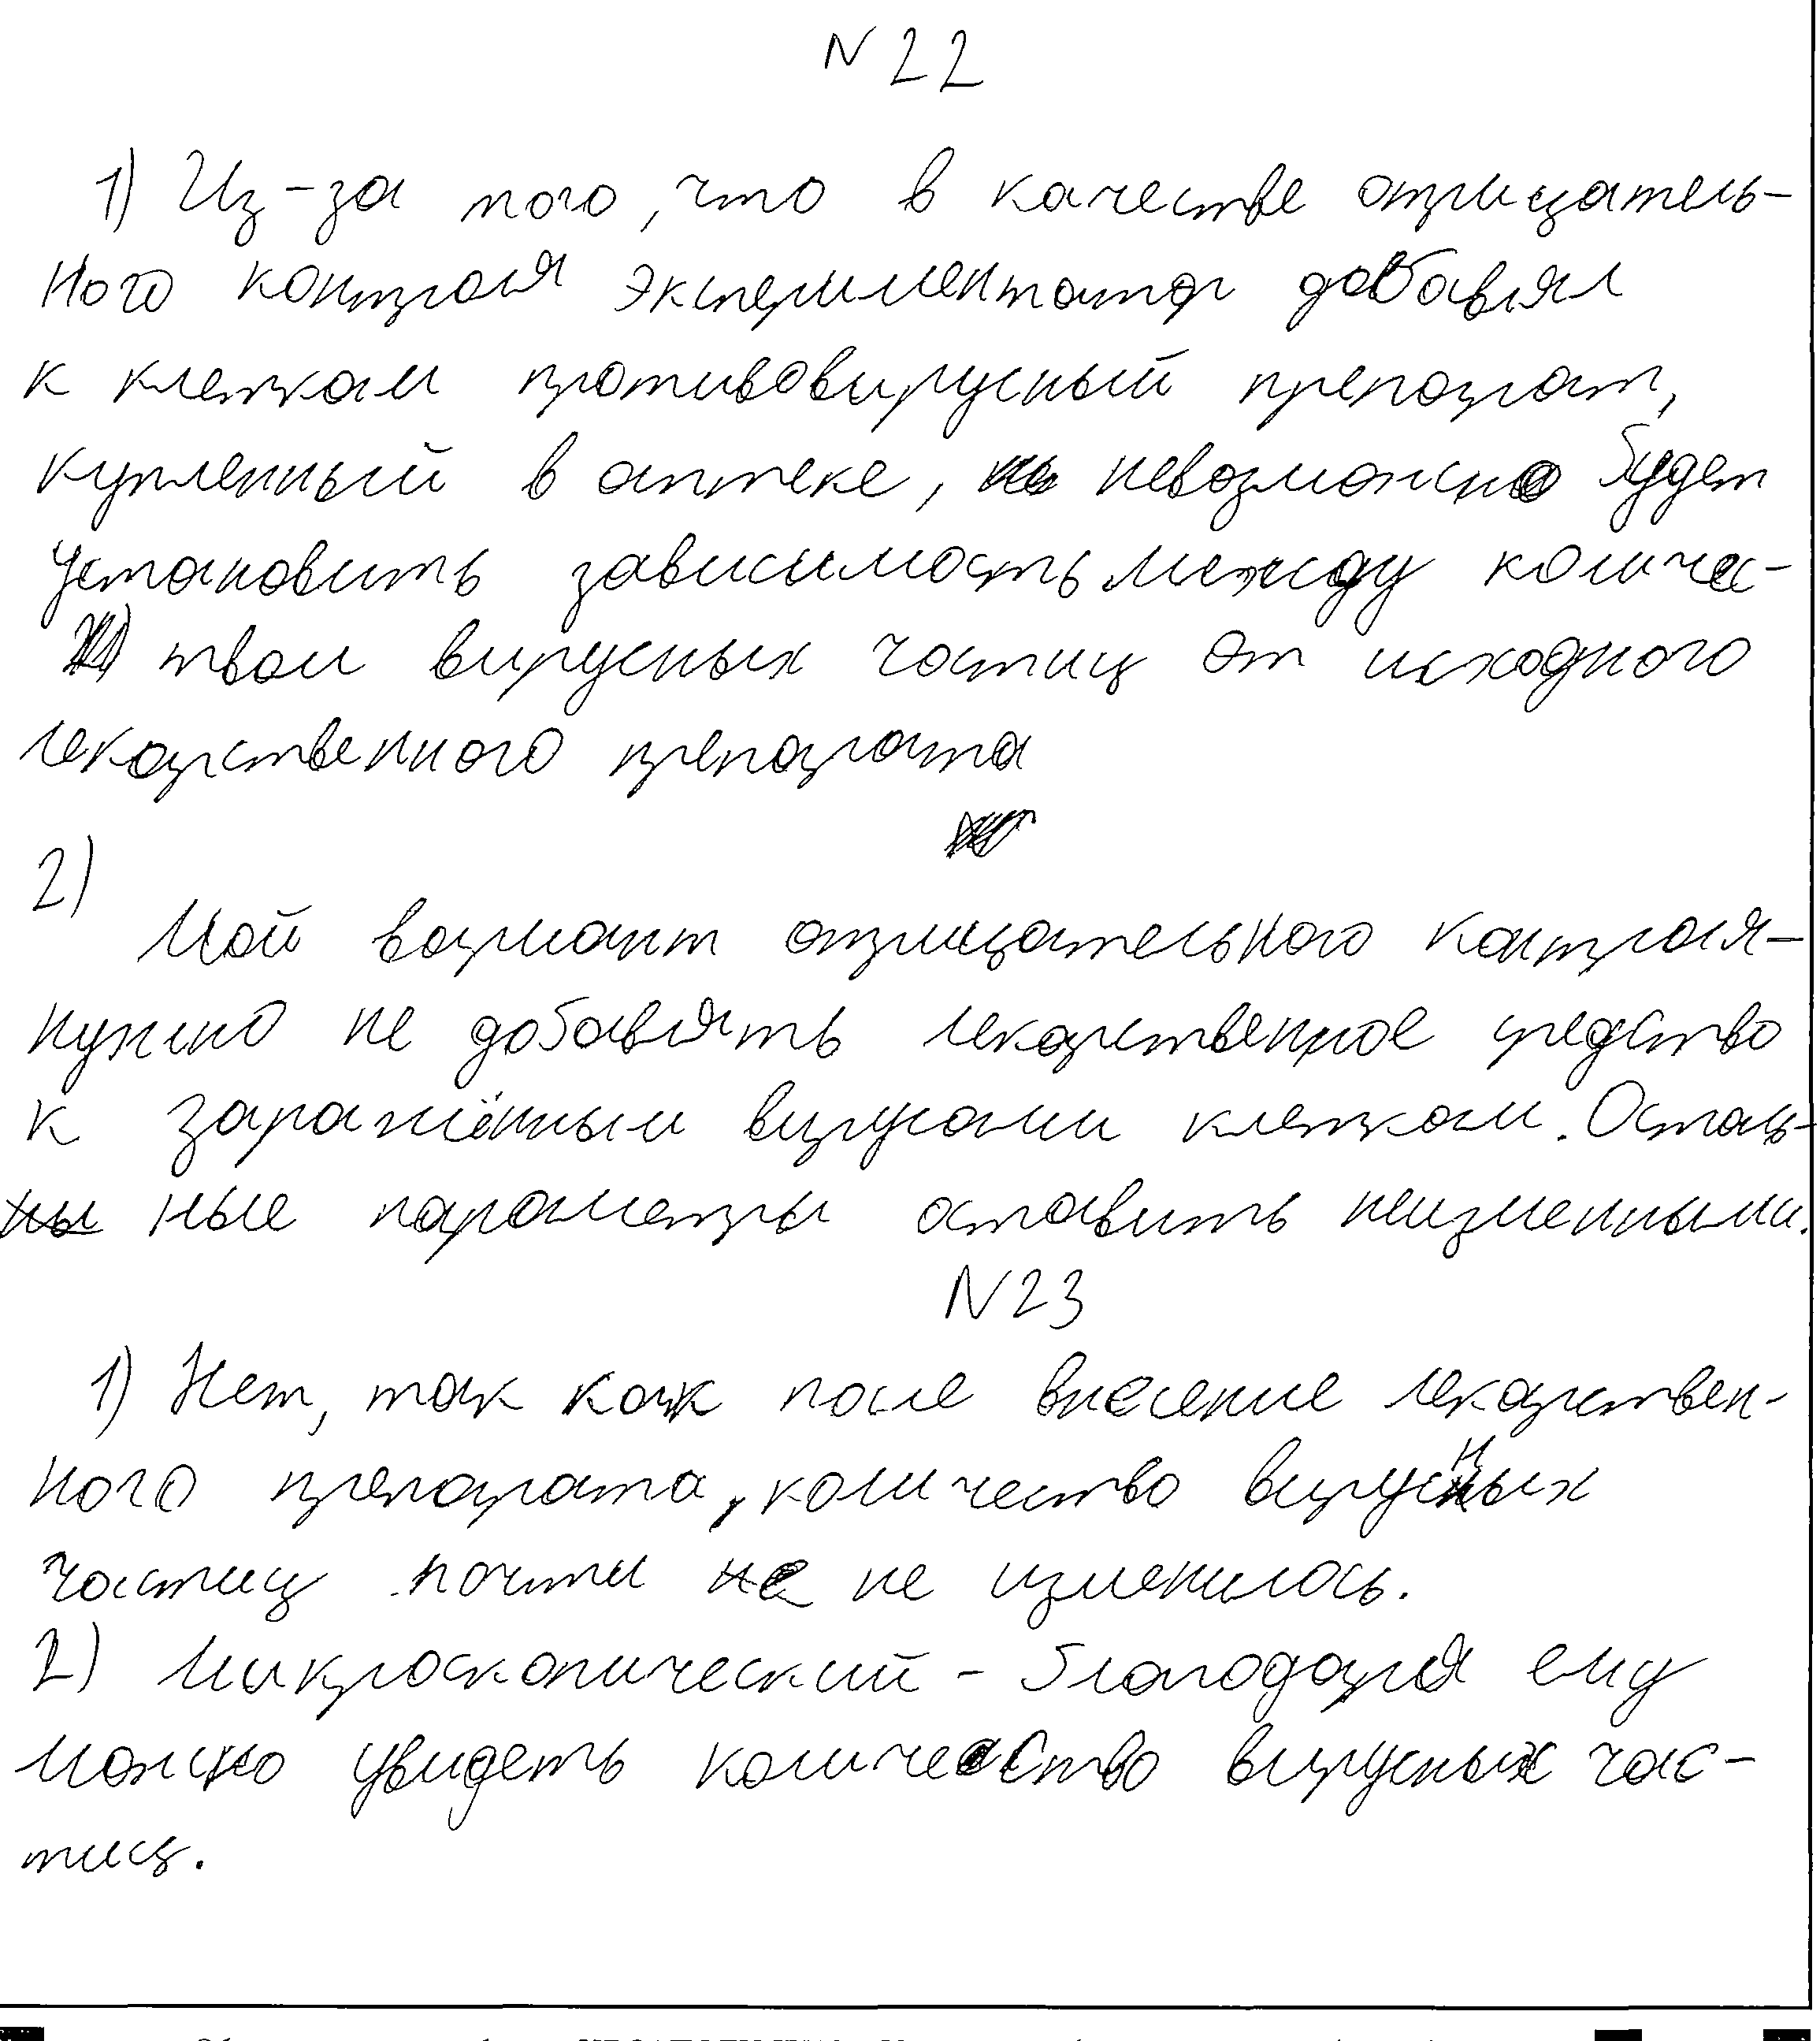 N 22
1) Из-за того, что в качестве отрицатель-
ного контроля экспериментатор добавлял
к клеткам противовирусный препарат,
купленный в аптеке, невозможно будет
установить зависимость между количес-
твом вирусных частиц от исходного
лекарственного препарата
2)
Мой вариант отрицательного контроля-
нужно не добавлять лекарственное средство
к заражённым вирусами клеткам. Осталь-
ные параметры оставить неизменными.
N23
1) Нет, так как после внесение лекарствен-
ного препарата, количество вирусных
частиц почти не изменилось.
2) Микроскопический - благодаря ему
можно увидеть количество вирусных час-
тиц.